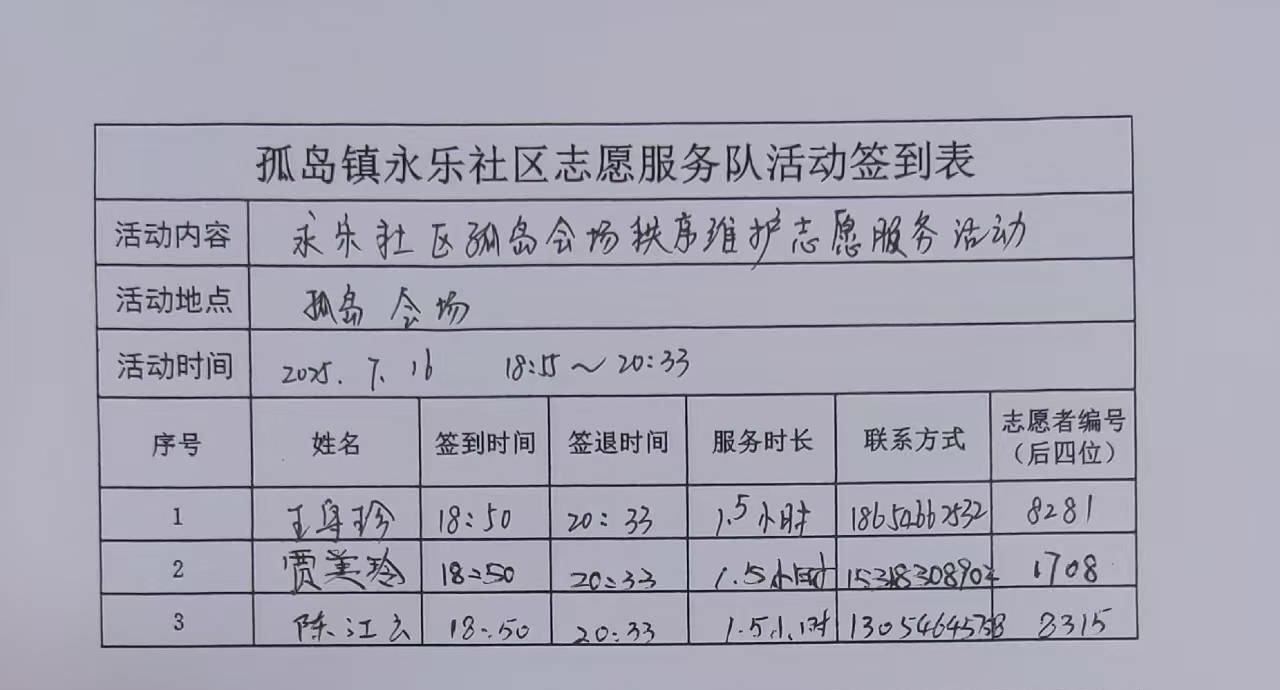 孤岛镇永乐社区志愿服务队活动签到表
活动内容 永乐社区孤岛会场秩序维护志愿服务活动
活动地点 孤岛会场
活动时间 2025.7.16 18:55～20:33
序号 姓名 签到时间 签退时间 服务时长 联系方式 志愿者编号（后四位）
1 18:50 20:33 1.5小时 8281
2 贾美玲 18:50 20:33 1.5小时 1708
3 陈江云 18:50 20:33 1.5小时 8315